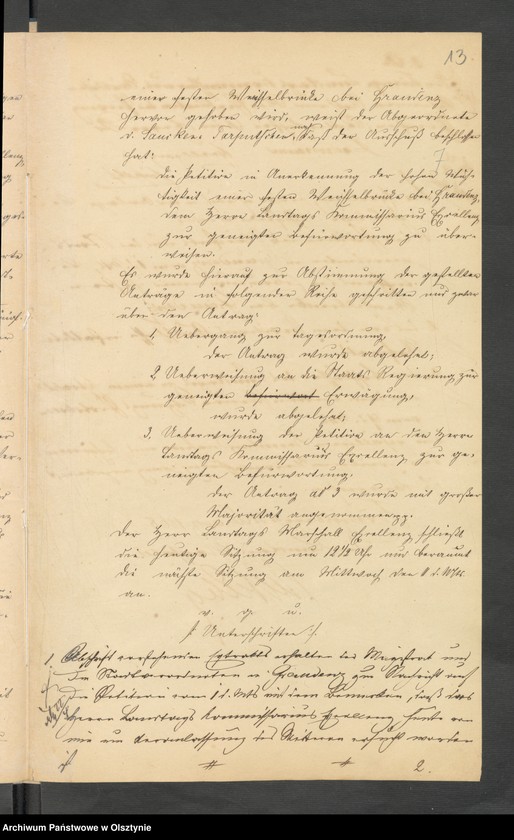 13.
einer festen Weichselbrücke bei Graudenz
hervor gehoben wird, weist der Abgeordnete
v. Saucken-Tarputschen nach, daß der Ausschuß beschlossen
hat:
die Petition in Anerkennung der hohen Wich-
tigkeit einer festen Weichselbrücke bei Graudenz,
dem Herrn Landtags Kommissarius Excellenz
zur geneigten Befürwortung zu über-
weisen.
Es wurde hierauf zur Abstimmung der gestellten
Anträge in folgender Reihe geschritten und zwar
über den Antrag:
1. Uebergang zur Tagesordnung,
der Antrag wurde abgelehnt;
2. Ueberweisung an die Staats Regierung zur
geneigten Erwägung,
wurde abgelehnt;
3. Ueberweisung der Petition an den Herrn
Landtags Kommissarius Excellenz zur ge-
neigten Befürwortung.
Der Antrag ad 3 wurde mit großer
Majorität angenommen pp.
Der Herr Landtags Marschall Excellenz schließt
die heutige Sitzung um 12½ Uhr und beraumt
die nächste Sitzung am Mittwoch den 8 d. Mts.
an.
v. g. u.
/: Unterschriften :/
1. Abschrift vorstehenden Extrakts erhalten der Magistrat und
die Stadtverordneten in Graudenz zur Nachricht auf
die Petition vom 1 d. Mts mit dem Bemerken, daß der
Herr Landtags Kommissarius Excellenz heute von
mir um Veranlassung des Weiteren ersucht worden
ist
2.
Archiwum Państwowe w Olsztynie